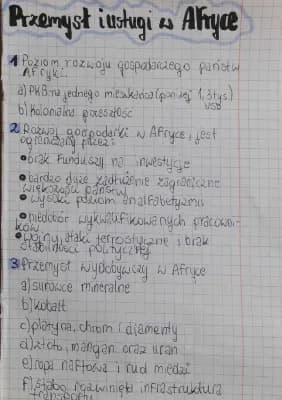 Przemysł i usługi w Afryce
1 Poziom rozwoju gospodarczego państw
Afryki
a) PKB na jednego mieszkańca (poniżej 1 tys.)
USD
b) Kolonialna przeszłość
2 Rozwój gospodarki w Afryce, jest
ograniczany przez:
• brak funduszy na inwestycje
• bardzo duże zadłużenie zagraniczne
większości państw
• wysoki poziom analfabetyzmu
• niedobór wykwalifikowanych pracowni-
ków
• wojny, ataki terrostyczne i brak
stabilności politycznej
3 Przemysł wydobywczy w Afryce
a) surowce mineralne
b) kobalt
c) platyna, chrom i diamenty
d) złoto, mangan oraz uran
e) ropa naftowa i rud miedzi
f) słabo rozwinięta infrastruktura
transportu